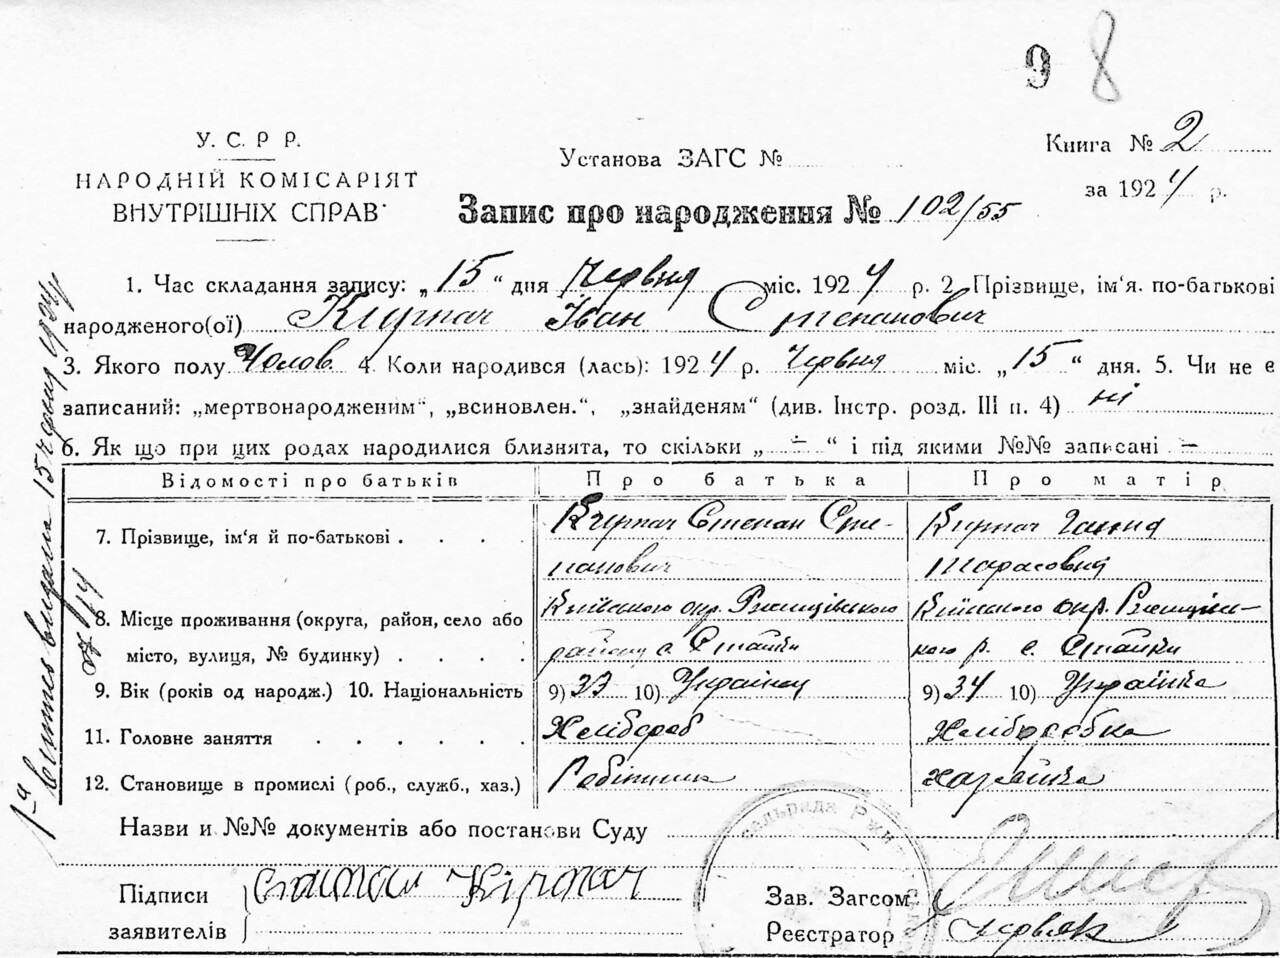 9 8
У. С. Р Р.
НАРОДНІЙ КОМІСАРІЯТ
ВНУТРІШНІХ СПРАВ
Установа ЗАГС №
Книга № 2
за 1924 р.
Запис про народження № 102/55
1. Час складання запису: „15" дня Червня міс. 1924 р. 2. Прізвище, ім'я. по-батькові
народженого(ої) Кирпач Іван Степанович
3. Якого полу Чолов. 4. Коли народився (лась): 1924 р. Червня міс. „15" дня. 5. Чи не є
записаний: „мертвонародженим", „всиновлен.", „знайденям" (див. Інстр. розд. III п. 4) ні
6. Як що при цих родах народилися близнята, то скільки „ — " і під якими №№ записані —
Відомості про батьків Про батька Про матір
7. Прізвище, ім'я й по-батькові . . . . Кирпач Степан Сте- Кирпач Ганна
панович Тарасовна
8. Місце проживання (округа, район, село або Київського окр. Ржищівського Київського окр. Ржищівс-
місто, вулиця, № будинку) . . . . району с. Стайки кого р. с. Стайки
9. Вік (років од народж.) 10. Національність 9) 33 10) Українец 9) 34 10) Українка
11. Головне заняття . . . . . . Хлібороб Хліборобка
12. Становище в промислі (роб., служб., хаз.) Робітник хазяйка
Назви и №№ документів або постанови Суду
Підписи
заявителів
Степан Кірпач
Зав. Загсом
Реєстратор Червяк
сельрада Ржищ
1-й витяг видан 15 червня 1924